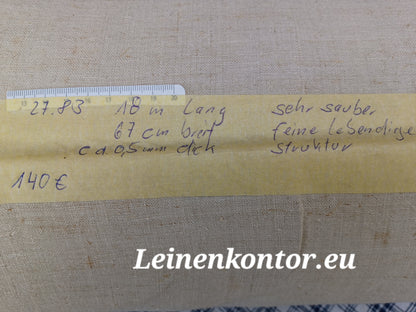 27.83 18 m lang sehr sauber
67 cm breit feine lebendige
ca 0,5 mm dick struktur
140 €
Leinenkontor.eu